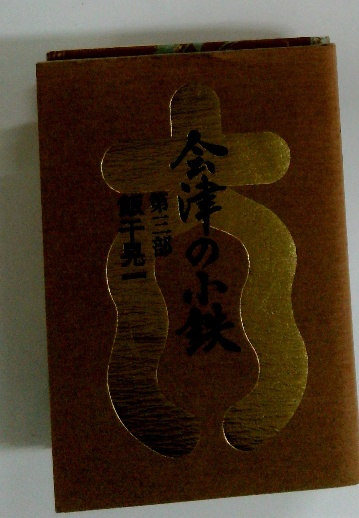 会津の小鉄
第三部
飯干晃一